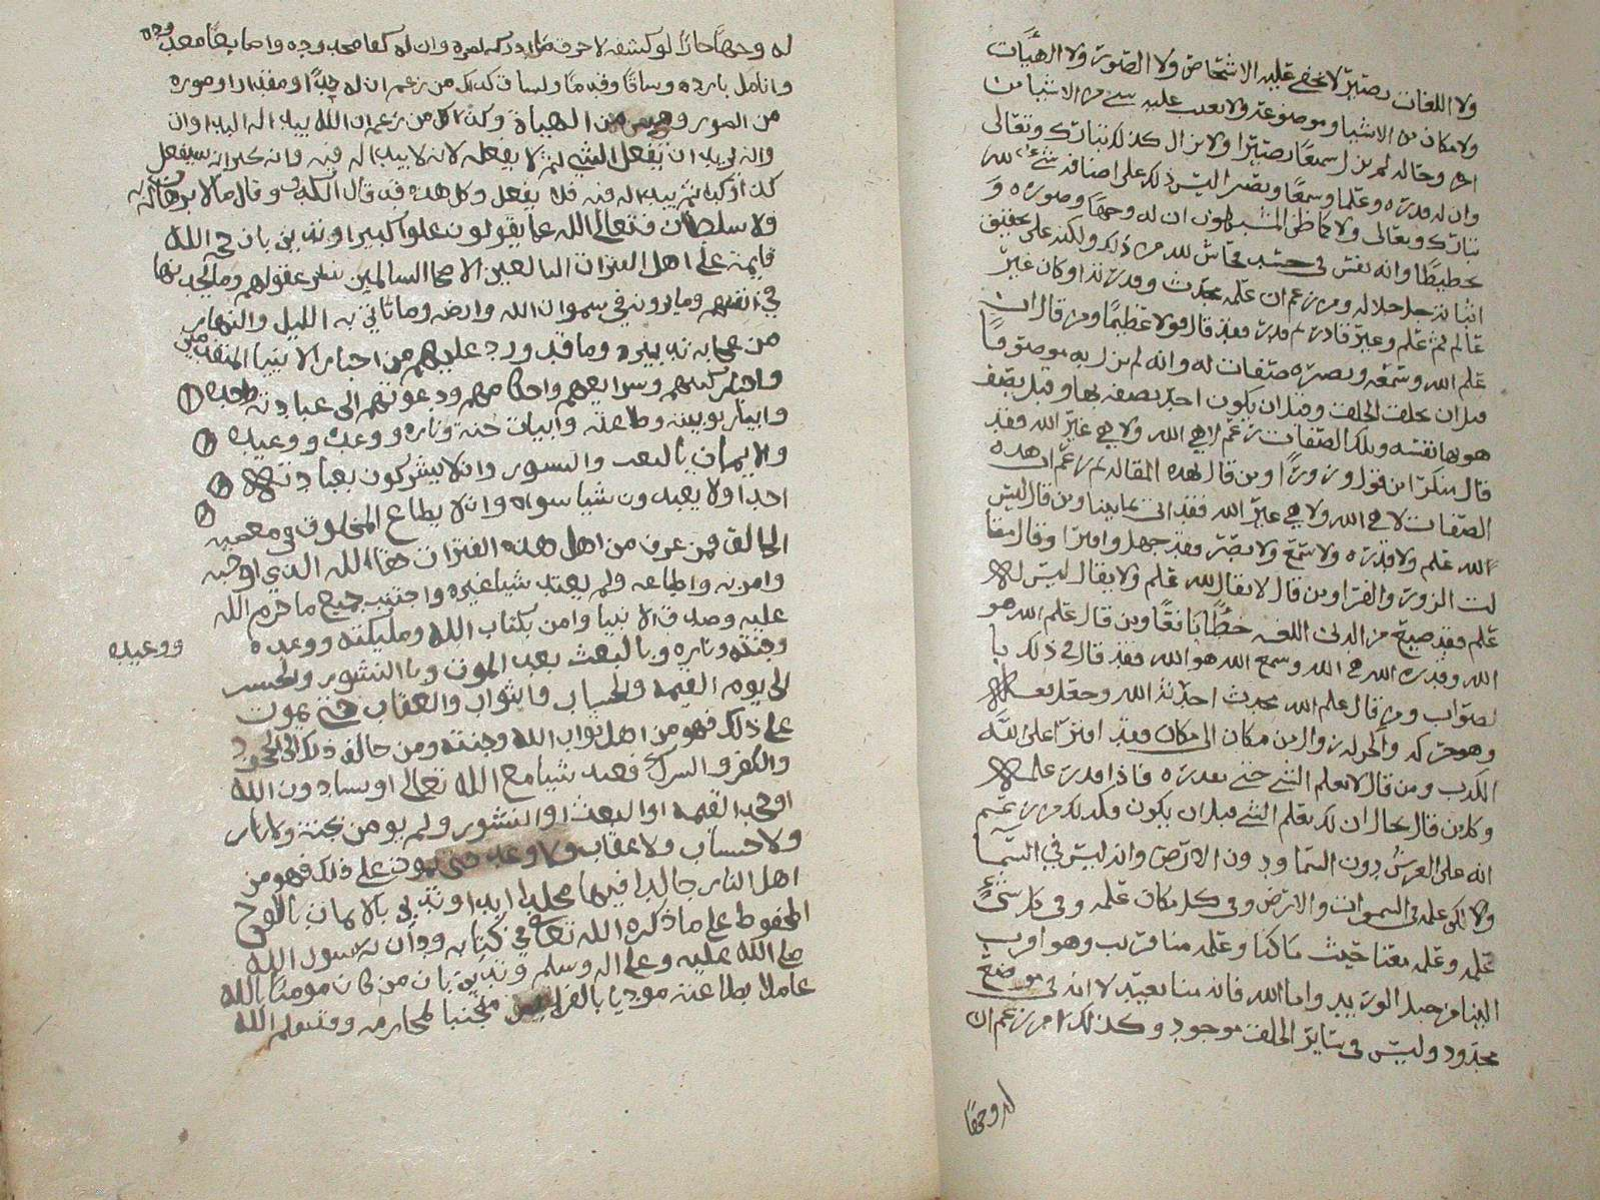 ولا اللغات بصير لا تخفى عليه الاشخاص ولا الصور ولا الهيات
ولا مكان من الاشيا وموضوعه ولا يغيب عليه شي من الاشيا من
احد وحاله لم يزل سميعا بصيرا ولا يزال كذلك تبارك وتعالى
وان له قدره وعلما وسمعا وبصرا ليس ذلك على اضافه شي الى
تبارك وتعالى ولا كما ظن المشبهون ان له وجها وصوره و
تخطيطا وانه نفس في جسد تحاش لله من ذلك ولكنه على تحقيق
اثباته جل جلاله ومن زعم ان علمه محدث وقدرته او كان غير
عالم ثم علم وغير قادر ثم قدر فقد قال قولا عظيما ومن قال ان
علم الله وسمعه وبصره صفات له وانه لم يزل به موصوفا
قبل ان يخلق الخلق وقبل ان يكون احد يصفه بها وقبل يصف
هو بها نفسه وتلك الصفات زعم لا هي الله ولا هي غير الله فقد
قال منكرا من قول وزورا ومن قال لهذه المقاله ثم زعم ان هذه
الصفات لا هي الله ولا هي غير الله فقد اتى بما بينا ومن قال ليس
لله علم ولا قدره ولا سمع ولا بصر فقد جهل وافترا وقال مقا
لت الزور والفرا ومن قال لا يقال لله علم ولا يقال ليس له
علم فقد ضيع من الدين اللفه حظا بايقا ومن قال علم الله هو
الله وقدره الله هي الله وسمع الله هو الله فقد قال في ذلك با
لصواب ومن قال علم الله محدث احدثه الله وجعله
وهو حركه والحركه زوال من مكان الى مكان فقد افترا على الله
الكذب ومن قال لا يعلم الشي حتى يقدره فاذا قدره علمه
وكل من قال بحال ان لم يعلم الشي قبل ان يكون وكذلك من زعم
انه على العرش دون السما ودون الارض وانه ليس في السما
ولا لكن علمه في السموات والارض وفي كل مكان علمه وفي كل شي
علمه وعلمه معنا حيث ما كنا وعلمه منا قريب وهو اقرب
الينا من حبل الوريد واما الله فانه منا بعيد لانه في موضع
محدود وليس في ساير الخلق موجود وكذلك من زعم ان
له وجها
له وجها جارا لو كشفه لاحرق ما ادركه بصره وان له كفا محدوده واصابعا معدوده
وانامل بارده وساقا وقدما ولسانا كذلك من زعم ان له حدا ومقدارا وصوره
من الصور وهيئ من الهياه وكذلك من زعم ان الله يبدا له البدا وان
وانه يريد ان يفعل الشي ثم لا يفعله لانه لا يبدا له فيه وانه يخبر انه سيفعل
كذا وكذا ثم يبدا له فيه فلا يفعل وكل هذه فقد قال الكذب وقال ما لا برهان له به
ولا سلطان فتعالى الله عما يقولون علوا كبيرا وندين بان حجه الله
قايمه على اهل الفترات البالغين الاصحا السالمين بفطر عقولهم وما يجدونها
في انفسهم وما يرونه في سموات الله وارضه وما تاتي به الليل والنهار
من عجايب تدبيره وما قد ورد عليهم من اخبار الانبيا المتقدمين
واخبار كتبهم وشرايعهم واحكامهم ودعوتهم الى عبادته وطاعته
واثبات ربوبيته وطاعته واثبات جنته وناره ووعده ووعيده
والايمان بالبعث والنشور وان لا يشركون بعبادته
احدا ولا يعبدون شيا سواه وان لا يطاع المخلوق في معصيه
الخالق فمن عرف من اهل هذه الفترات حق الله الذي اوجبه
وامر به واطاعه ولم يعبد شيا غيره واجتنب جميع ما حرم الله
عليه وصدق الانبيا وامن بكتاب الله ومليكته ووعده ووعيده
وجنته وناره وبالبعث بعد الموت وبالنشور والحشر
الى يوم القيمه والحساب والثواب والعقاب حتى يموت
على ذلك فهو من اهل ثواب الله وجنته ومن خالف ذلك الى الجحود
والكفر والشرك فعبد شيا مع الله تعالى او شيا دون الله
او جحد القيمه او البعث او النشور ولم يومن بجنه ولا نار
ولا حساب ولا عقاب ولا وعد حتى يموت على ذلك فهو من
اهل النار خالدا فيها مخلدا ابدا وندين بالايمان باللوح
المحفوظ على ما ذكره الله تعالى في كتابه وبان رسول الله
صلى الله عليه وعلى اله وسلم وندين بان من كان مومنا بالله
عاملا بطاعته موديا بالفرايض مجتنبا لمحارمه ومتبعا لله